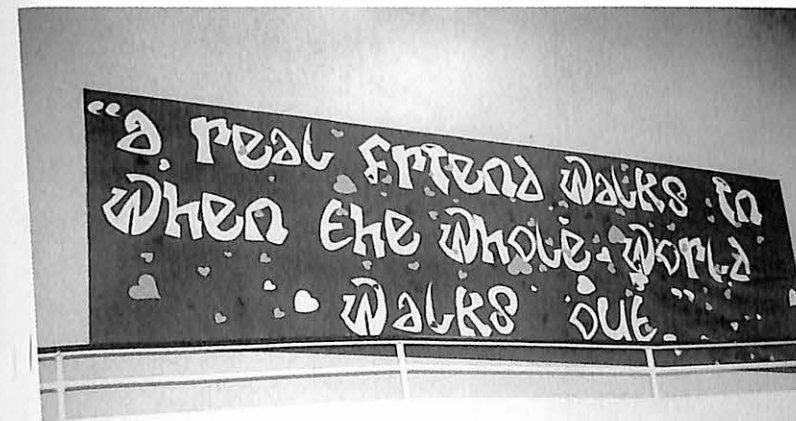 “a real friend walks in
when the whole world
walks out”